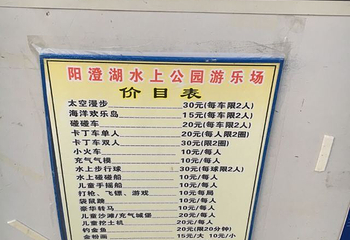 阳澄湖水上公园游乐场
价目表
太空漫步 30元(每车限2人)
海洋欢乐岛 15元(每车限2人)
碰碰车 20元(每车限2人)
卡丁车单人 20元(每人限2圈)
卡丁车双人 30元(限2圈)
小火车 10元/每人
充气气模 10元/每人
水上步行球 30元(每球限2人)
水上碰碰船 10元/每人
儿童手摇船 10元/每人
打枪、飞镖、游戏 10元每局
袋鼠跳 10元/每人
豪华转马 10元/每人
儿童沙滩/充气城堡 20元/每人
儿童挖土机 20元/每人
钓金鱼 20元(限20分钟)
金粉画 15元/大 10元/小